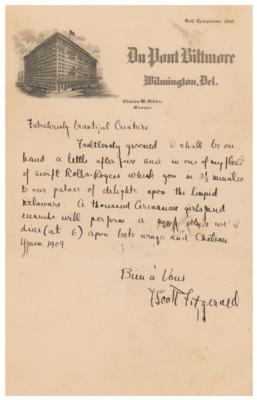 Bell Telephone 3160
Du Pont Biltmore
Wilmington, Del.
Manager.
Fabulously beautiful Creature
Faultlessly groomed I shall be on
hand a little after five and in one of my fleet
of swift Rolls-Royces whisk you in 3½ minutes
to our palace of delights upon the limpid
Delaware. A thousand Circassian girls and
eunuchs will perform a while we
dine (at 6) upon bats wings and Chateau
Yquem 1909
Bien à Vous
F Scott Fitzgerald